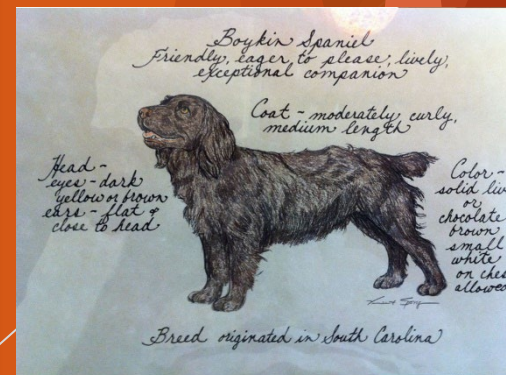 Boykin Spaniel
Friendly, eager to please, lively,
exceptional companion
Coat - moderately curly,
medium length
Head -
eyes - dark
yellow or brown
ears - flat &
close to head
Color -
solid liv
or
chocolate
brown
small
white
on ches
allowed
Breed originated in South Carolina